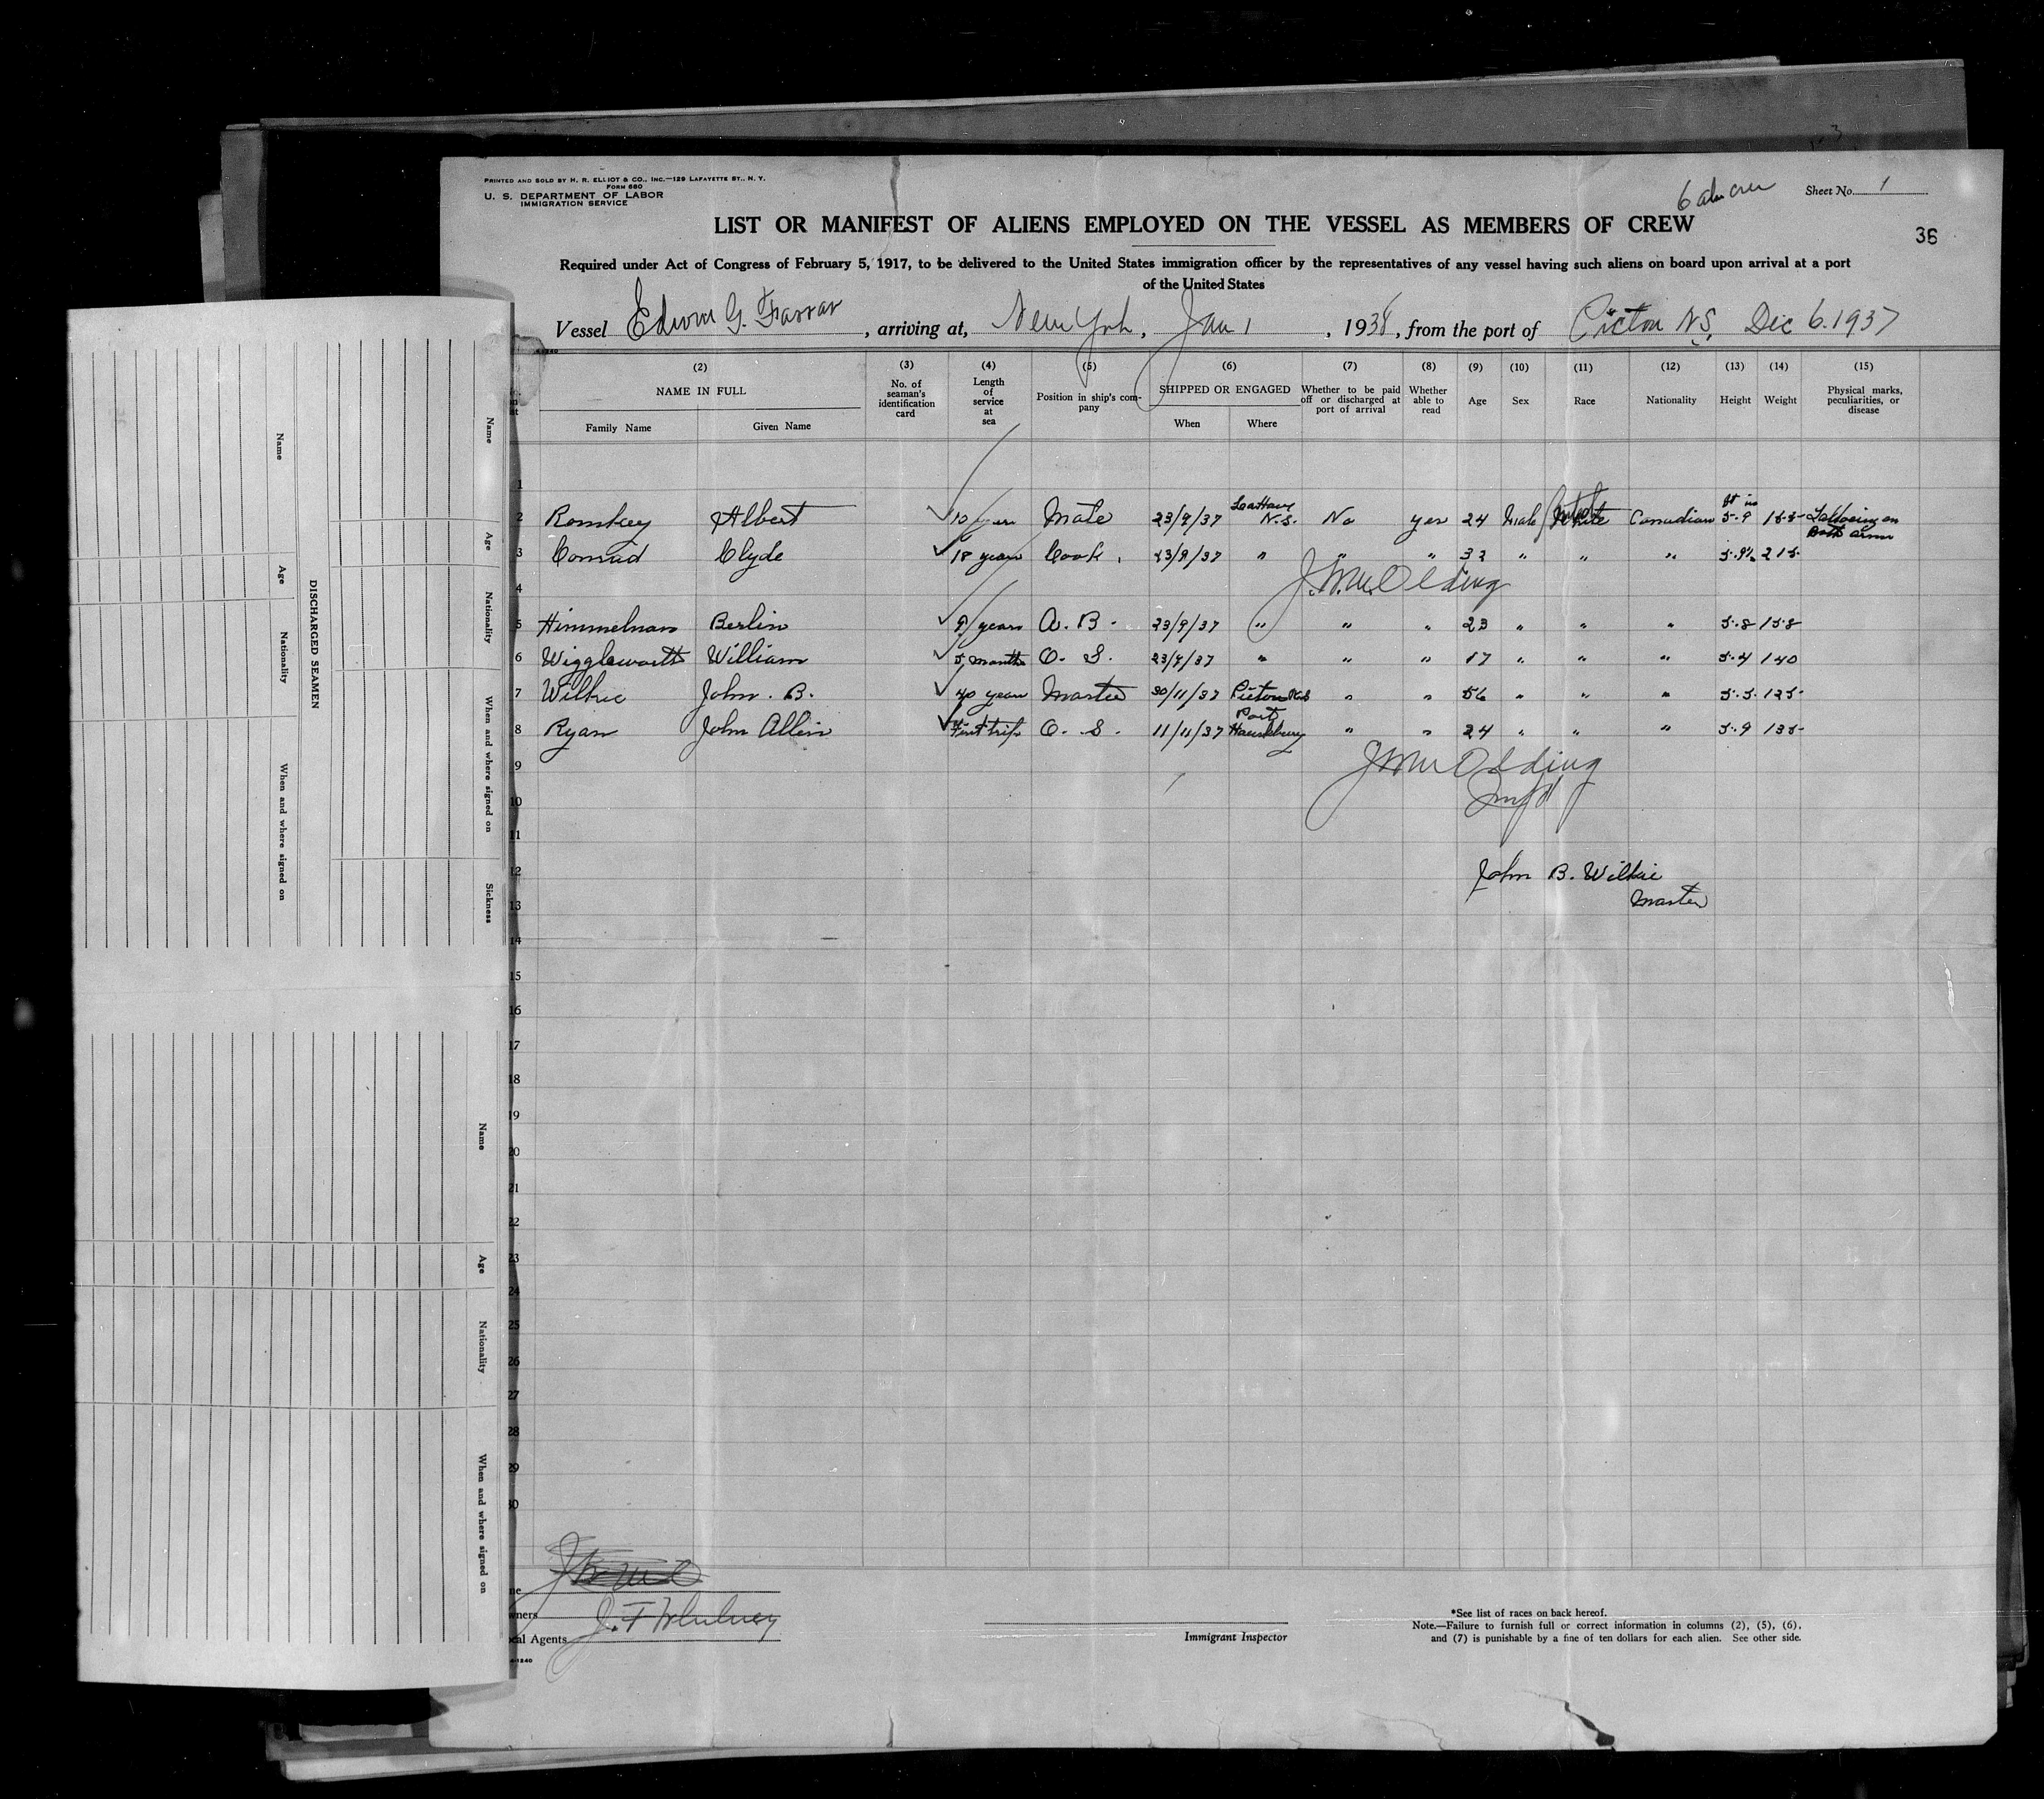 PRINTED AND SOLD BY H. R. ELLIOT & CO., INC.—129 LAFAYETTE ST., N. Y.
FORM 680
U. S. DEPARTMENT OF LABOR
IMMIGRATION SERVICE
6 alien crew
Sheet No. 1
LIST OR MANIFEST OF ALIENS EMPLOYED ON THE VESSEL AS MEMBERS OF CREW
36
Required under Act of Congress of February 5, 1917, to be delivered to the United States immigration officer by the representatives of any vessel having such aliens on board upon arrival at a port
of the United States
Vessel Edwin G. Farrar, arriving at, New York, Jan 1, 1938, from the port of Picton N.S. Dec 6. 1937
(2) (3) (4) (5) (6) (7) (8) (9) (10) (11) (12) (13) (14) (15)
NAME IN FULL
Family Name Given Name
No. of seaman's identification card
Length of service at sea
Position in ship's company
SHIPPED OR ENGAGED
When Where
Whether to be paid off or discharged at port of arrival
Whether able to read
Age
Sex
Race
Nationality
Height
Weight
Physical marks, peculiarities, or disease
1
2 Romkey Albert 10 years Mate 23/9/37 LaHave N.S. No yes 24 Male White Canadian ft in 5.9 155 Tattooing on Both arms
3 Conrad Clyde 18 years Cook 23/9/37 " " " 32 " " " 5.9½ 215
J. McM. Olding
4
5 Himmelman Berlin 9 years A. B. 23/9/37 " " " 23 " " " 5.8 158
6 Wigglesworth William 5 months O. S. 23/9/37 " " " 17 " " " 5.4 140
7 Wilkie John. B. 40 years Master 30/11/37 Picton N.S. " " 56 " " " 5.5. 125
8 Ryan John Allin First trip O. S. 11/11/37 Port Hawksbury " " 24 " " " 5.9 135
9
10
11
12 John B. Wilkie
13 Master
14
15
16
17
18
19
20
21
22
23
24
25
26
27
28
29
30
wners
cal Agents
J. F. Whitney
Immigrant Inspector
*See list of races on back hereof.
Note.—Failure to furnish full or correct information in columns (2), (5), (6),
and (7) is punishable by a fine of ten dollars for each alien. See other side.
DISCHARGED SEAMEN
Name
Age
Nationality
When and where signed on
Name
Age
Nationality
When and where signed on
Sickness
Name
Age
Nationality
When and where signed on